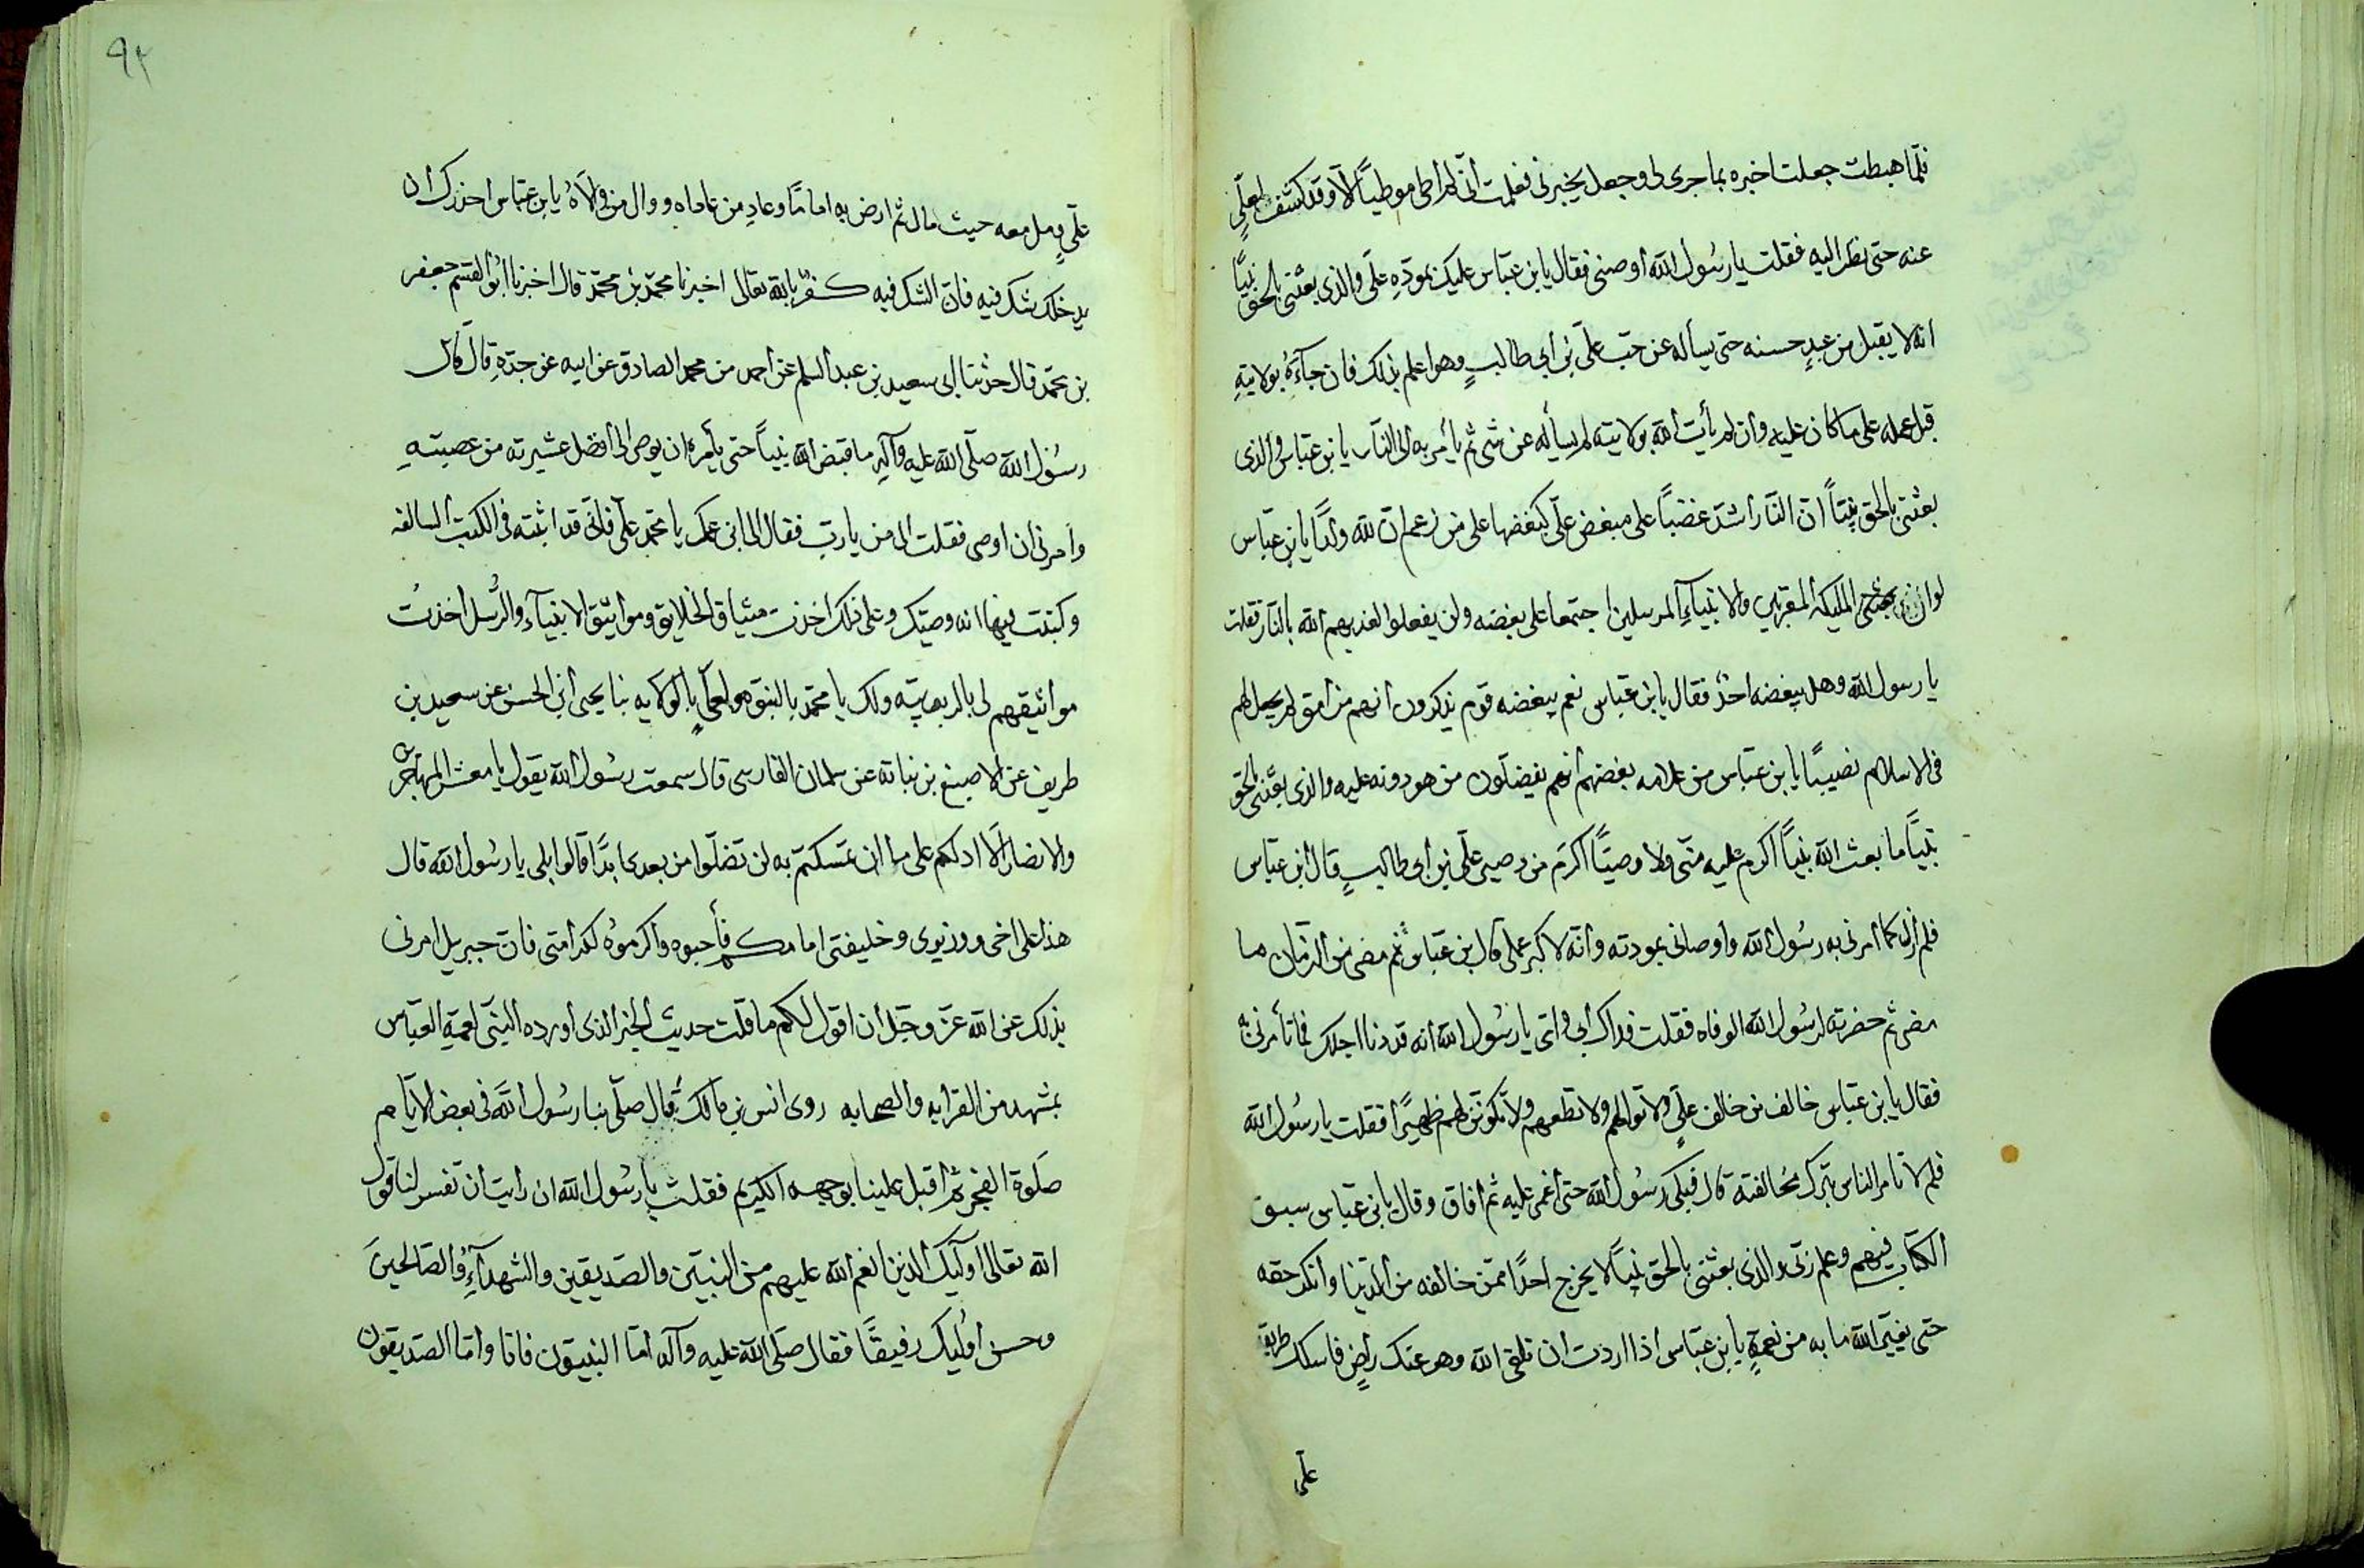 فلمّا هبطت جعلت اخبره بما جرى لى وجعل يخبرنى فعلمت انّى لم اطا موطيًا الّا وقد كشف لعلّى
عنه حتى نظر اليه فقلت يا رسُول الله أوصنى فقال يا بن عبّاس عليك بمودّهِ علّى والذى بعثنى بالحق نبيًّا
انه لا يقبل من عبدٍ حسنه حتى يسأله عن حبّ علّى بن أبى طالبٍ وهو اعلم بذلك فان جآءَهُ بولايتِهِ
قبل عمله على ما كان عليه وان لم يأت الله بولايته لم يسأله عن شى ثم يأمر به الى النّار يا بن عبّاس والذى
بعثنى بالحق نبيًّا انّ النّار اشدّ غضبًا على مبغض علّى كبغضها على من زعم انّ لله ولدًا يا بن عبّاس
لو ان المليكه المقربين والانبيآءِ المرسلين اجتمعا على بغضه ولن يفعلوا لعذبهم الله بالنّار فقلت
يا رسول الله وهل يبغضه احدٌ فقال يا بن عبّاس نعم يبغضه قوم يذكرون انهم من أمتى لم يجعل لهم
فى الاسلام نصيبًا يا بن عبّاس من علامه بغضهم انهم يفضلّون من هو دونه عليه والذى بعثنى بالحق
نبيًّا ما بعث الله نبيًّا اكرم عليه منّى ولا وصيًّا اكرم من وصيى علّى بن أبى طالبٍ قال ابن عبّاس
فلم ازل كما امرنى به رسُول الله واوصانى بمودته وانّه لاكبر عملى قال بن عبّاس ثم مضى من الزمان ما
مضى ثم حضرته لرسُول الله الوفاه فقلت فداك أبى وامّى يا رسُول الله انه قد دنا اجلك فما تأمرنى به
فقال يا بن عبّاس خالف من خالف علّى ولا توالهم ولا تطعهم ولا تكونّن لهم ظهيرًا فقلت يا رسُول الله
فلم لا تامر الناس بترك مخالفته قال فبكى رسُول الله حتى أغمى عليه ثم افاق وقال يا بن عبّاس سبق
الكتاب فيهم وعلم ربّى والذى بعثنى بالحق نبيًّا لا يخرج احدًا ممّن خالفه من الدّنيا وانكر حقه
حتى يغيّر الله ما به من نعمةٍ يا بن عبّاس اذا اردت ان تلقى الله وهو عنك راضٍ فاسلك طريق
علّى
٩٢
علّىٍ ومل معه حيث مال ثم ارض به امامًا وعادِ من عاداه ووال من ولآهُ يا بن عبّاس احذرك ان
يدخلك شك فيه فانّ الشك فيه كفرٌ بالله تعالى اخبرنا محمّد بن محمّد قال اخبرنا ابُو القسم جعفر
بن محمّد قال حدّثنا ابى سعيد بن عبد السلم عن احمد من محمد الصادق عن ابيه عن جدّهِ قال قال
رسُول الله صلّى الله عليه وآلهِ ما قبض الله نبيًّا حتى يأمره ان يوصى الى أفضل عشيرته من عصبتهِ
وامرنى ان اوصى فقلت الى من يا ربّ فقال الى ابن عمك يا محمّد علّى فانّى قد اثبته فى الكتب السالفه
وكتبت فيها انه وصيّك وعلى ذلك اخذت ميثاق الخلايق ومواثيق الانبيآء والرُسل اخذتُ
مواثيقهم لى بالربوبيّه ولك يا محمّد بالنبوّه ولعلّىٍ بالولايه نبا يحيى ابى الحسن عن سعيد بن
طريف عن الاصبغ بن نباته عن سلمان الفارسى قال سمعت رسُول الله يقول يا معشر المهاجرين
والانصار ألا ادلكم على ما ان تمسكتم به لن تضلّوا من بعدى ابدًا قالوا بلى يا رسُول الله قال
هذا علىّ اخى ووزيرى وخليفتى امامكم فأحبوه واكرموُه لكرامتى فانّ جبريل امرنى
بذلك عن الله عزّ وجّل ان اقول لكم ما قلت حديث الخبر الذى اورده النبّى لعمّهِ العبّاس
بمشهد من القرابه والصحابه روى انس بن مالك قال صلّى بنا رسُول الله فى بعض الايّام
صَلوة الفجر ثم اقبل علينا بوجهه الكريم فقلت يا رسُول الله ان رايت ان تفسر لنا قول
الله تعالى اوليك الذين انعم الله عليهم من النبيّين والصّديقين والشهدآءِ والصّالحينَ
وحسن اوُليك رفيقًا فقال صَلى الله عليه وآله امّا النبيّون فانا وامّا الصّديقون